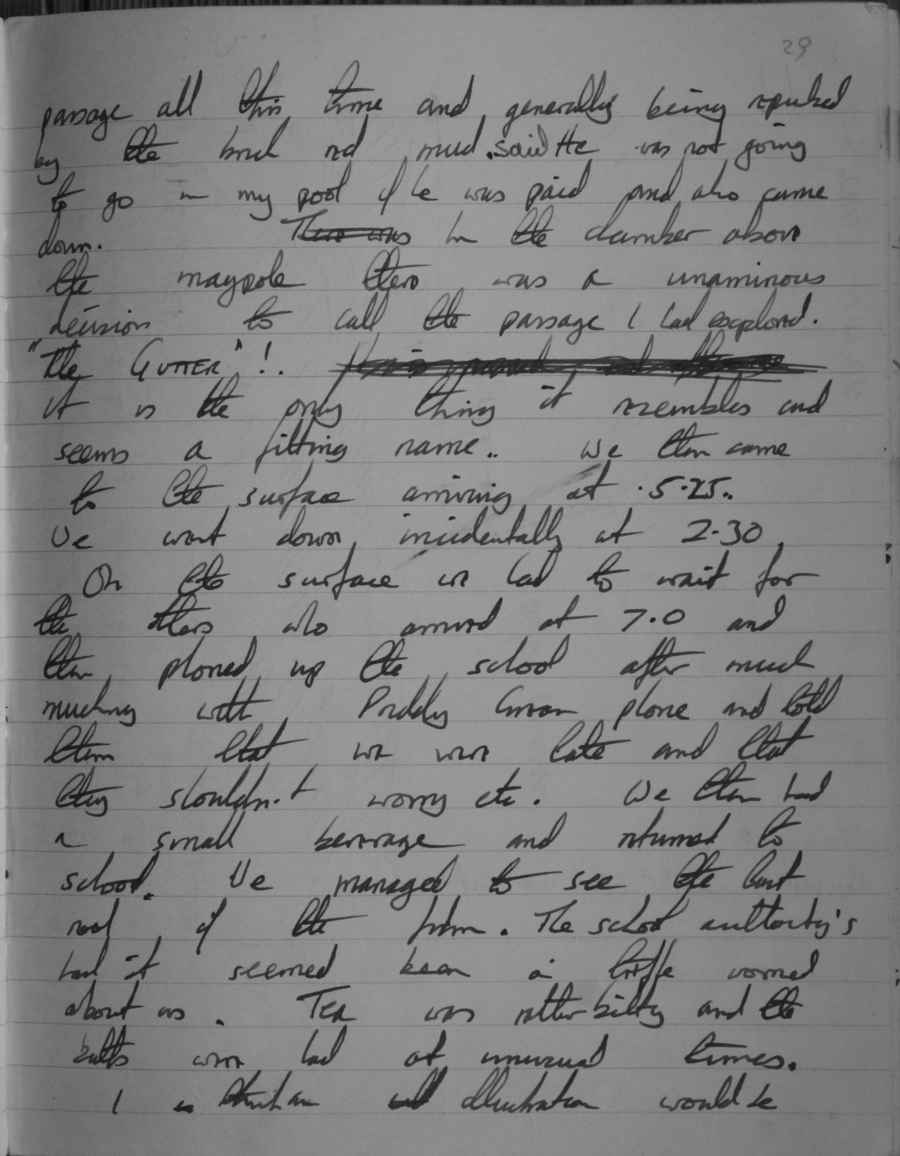 29
passage all this time and generally being repulsed
by the brick red mud. said He was not going
to go in my pool if he was paid and also came
down. There was In the chamber above
the maypole there was a unaminous
decision to call the passage I had explored.
"The GUTTER"!.
it is the only thing it resembles and
seems a fitting name.. We then came
to the surface arriving at 5.25..
We went down, incidentally at 2-30.
On the surface we had to wait for
the others who arrived at 7.0 and
then phoned up the school after much
mucking with Priddy Green phone and told
them that we were late and that
they shouldn't worry etc. We then had
a small beverage and returned to
school. We managed to see the last
reel of the film. The school authority's
had it seemed been a triffe worried
about us. Tea was rather and the
baths were had at unusual times.
I illustration would be